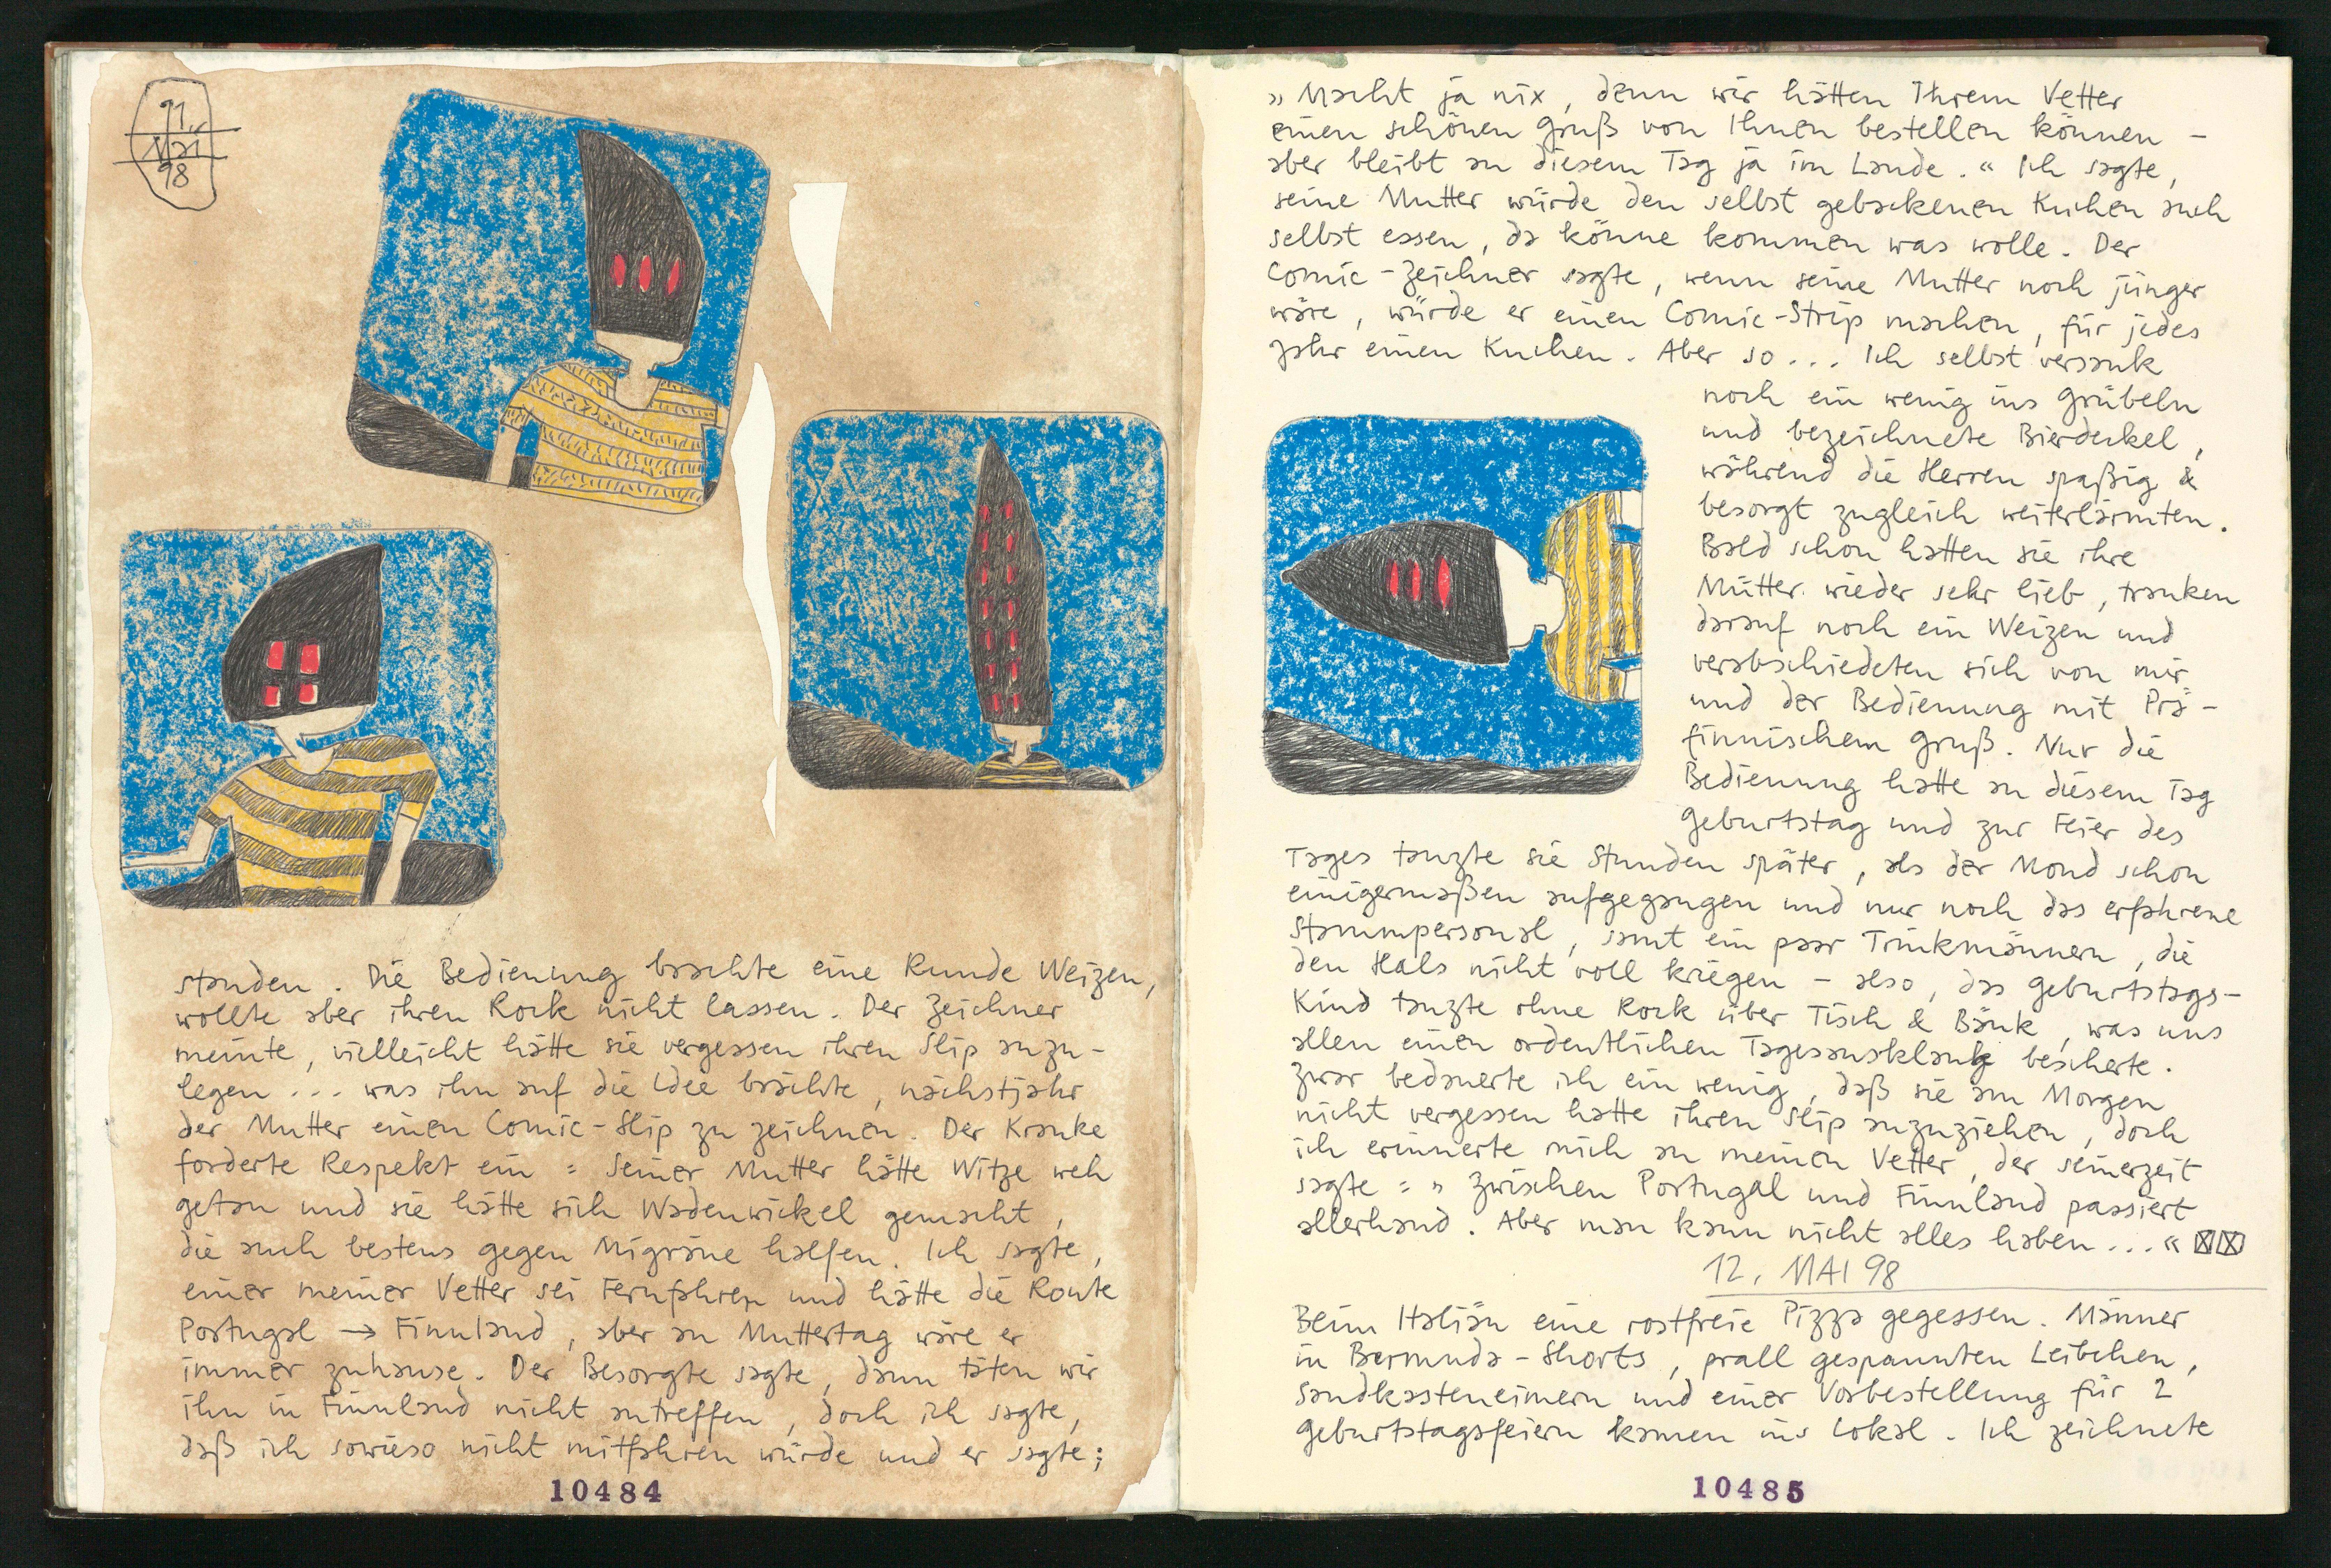 11.
Mai
98
standen. Die Bedienung brachte eine Runde Weizen,
wollte aber ihren Rock nicht lassen. Der Zeichner
meinte, vielleicht hätte sie vergessen ihren Slip anzu-
legen ... was ihn auf die Idee brächte, nächstjahr
der Mutter einen Comic-Slip zu zeichnen. Der Kranke
forderte Respekt ein : Seiner Mutter hätte Witze weh
getan und sie hätte sich Wadenwickel gemacht,
die auch bestens gegen Migräne halfen. Ich sagte,
einer meiner Vetter sei Fernfahrer und hätte die Route
Portugal → Finnland, aber an Muttertag wäre er
immer zuhause. Der Besorgte sagte, dann täten wir
ihn in Finnland nicht antreffen, doch ich sagte,
daß ich sowieso nicht mitfahren würde und er sagte;
10484
» Macht ja nix, denn wir hätten Ihrem Vetter
einen schönen Gruß von Ihnen bestellen können –
aber bleibt an diesem Tag ja im Lande. « Ich sagte,
seine Mutter würde den selbst gebackenen Kuchen auch
selbst essen, da könne kommen was wolle. Der
Comic-Zeichner sagte, wenn seine Mutter noch jünger
wäre, würde er einen Comic-Strip machen, für jedes
Jahr einen Kuchen. Aber so ... Ich selbst versank
noch ein wenig ins Grübeln
und bezeichnete Bierdeckel,
während die Herren spaßig &
besorgt zugleich weiterlärmten.
Bald schon hatten sie ihre
Mütter wieder sehr lieb, tranken
darauf noch ein Weizen und
verabschiedeten sich von mir
und der Bedienung mit Prä-
finnischem Gruß. Nur die
Bedienung hatte an diesem Tag
Geburtstag und zur Feier des
Tages tanzte sie Stunden später, als der Mond schon
einigermaßen aufgegangen und nur noch das erfahrene
Stammpersonal, samt ein paar Trinkmännern, die
den Hals nicht voll kriegen – also, das Geburtstags-
Kind tanzte ohne Rock über Tisch & Bänk, was uns
allen einen ordentlichen Tagesausklang bescherte.
Zwar bedauerte ich ein wenig, daß sie am Morgen
nicht vergessen hatte ihren Slip anzuziehen, doch
ich erinnerte mich an meinen Vetter, der seinerzeit
sagte : » Zwischen Portugal und Finnland passiert
allerhand. Aber man kann nicht alles haben ... «
12. MAI 98
Beim Italiän eine rostfreie Pizza gegessen. Männer
in Bermuda-Shorts, prall gespannten Leibchen,
Sandkasteneimern und einer Vorbestellung für 2
Geburtstagsfeiern kamen ins Lokal. Ich zeichnete
10485